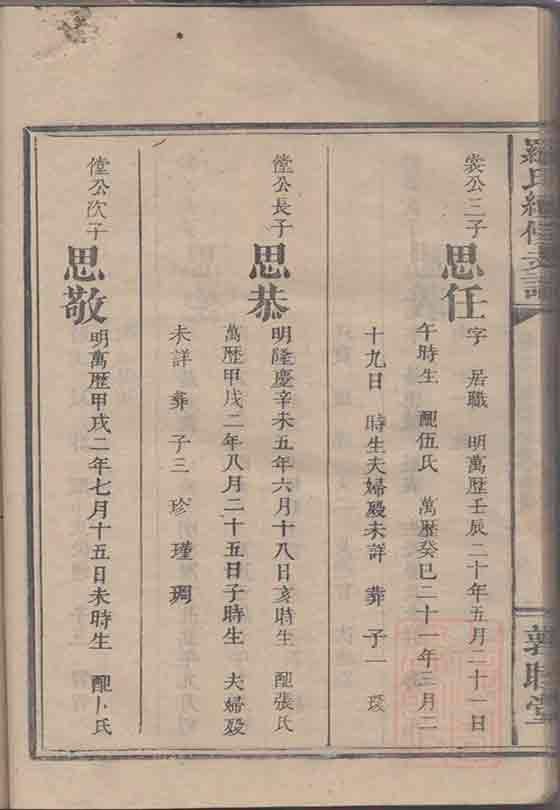 羅氏續修支譜
裳公三子
思任
字 居職 明萬歷壬辰二十年五月二十一日
午時生 配伍氏 萬歷癸巳二十一年三月二
十九日 時生夫婦殁未詳 葬 子一 琰
堂公長子
思恭
明隆慶辛未五年六月十八日亥時生 配張氏
萬歷甲戌二年八月二十五日子時生 夫婦殁
未詳 葬 子三 珍 瑾 琱
堂公次子
思敬
明萬歷甲戌二年七月十五日未時生 配卜氏